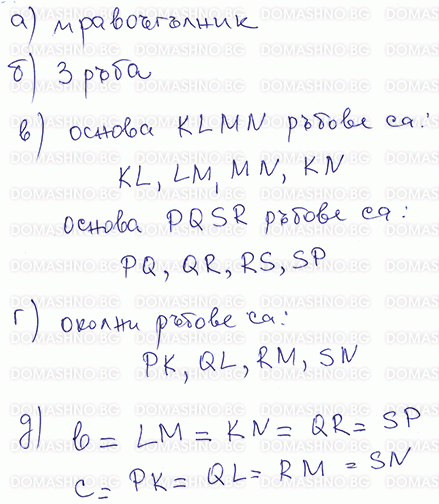 а) правоъгълник
б) 3 ръба
в) основа KLMN ръбове са:
KL, LM, MN, KN
основа PQSR ръбове са:
PQ, QR, RS, SP
г) околни ръбове са:
PK, QL, RM, SN
д) b = LM = KN = QR = SP
c = PK = QL = RM = SN